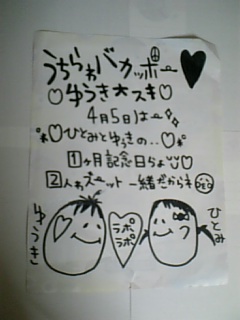 うちらゎバカッポー
♡ゆうき大スキ♡
4月5日は
♡ひとみとゆうきの・・♡
1ヶ月記念日らょ
2人ゎズーット一緒だからネ
ゆうき
ラブ
ラブ
ひとみ